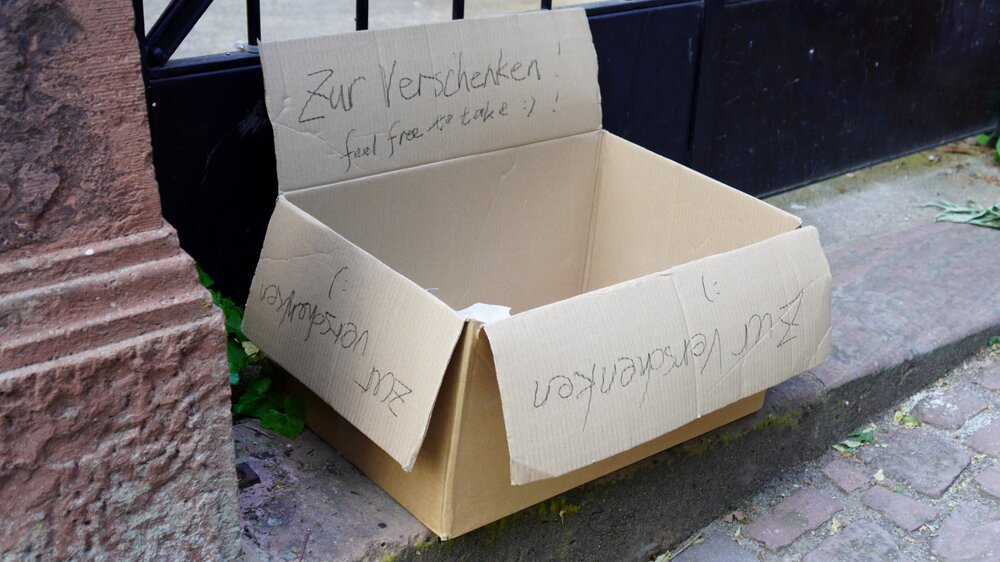 Zur Verschenken!
feel free to take :) !
zur
verschenken
:)
Zur Verschenken
:)